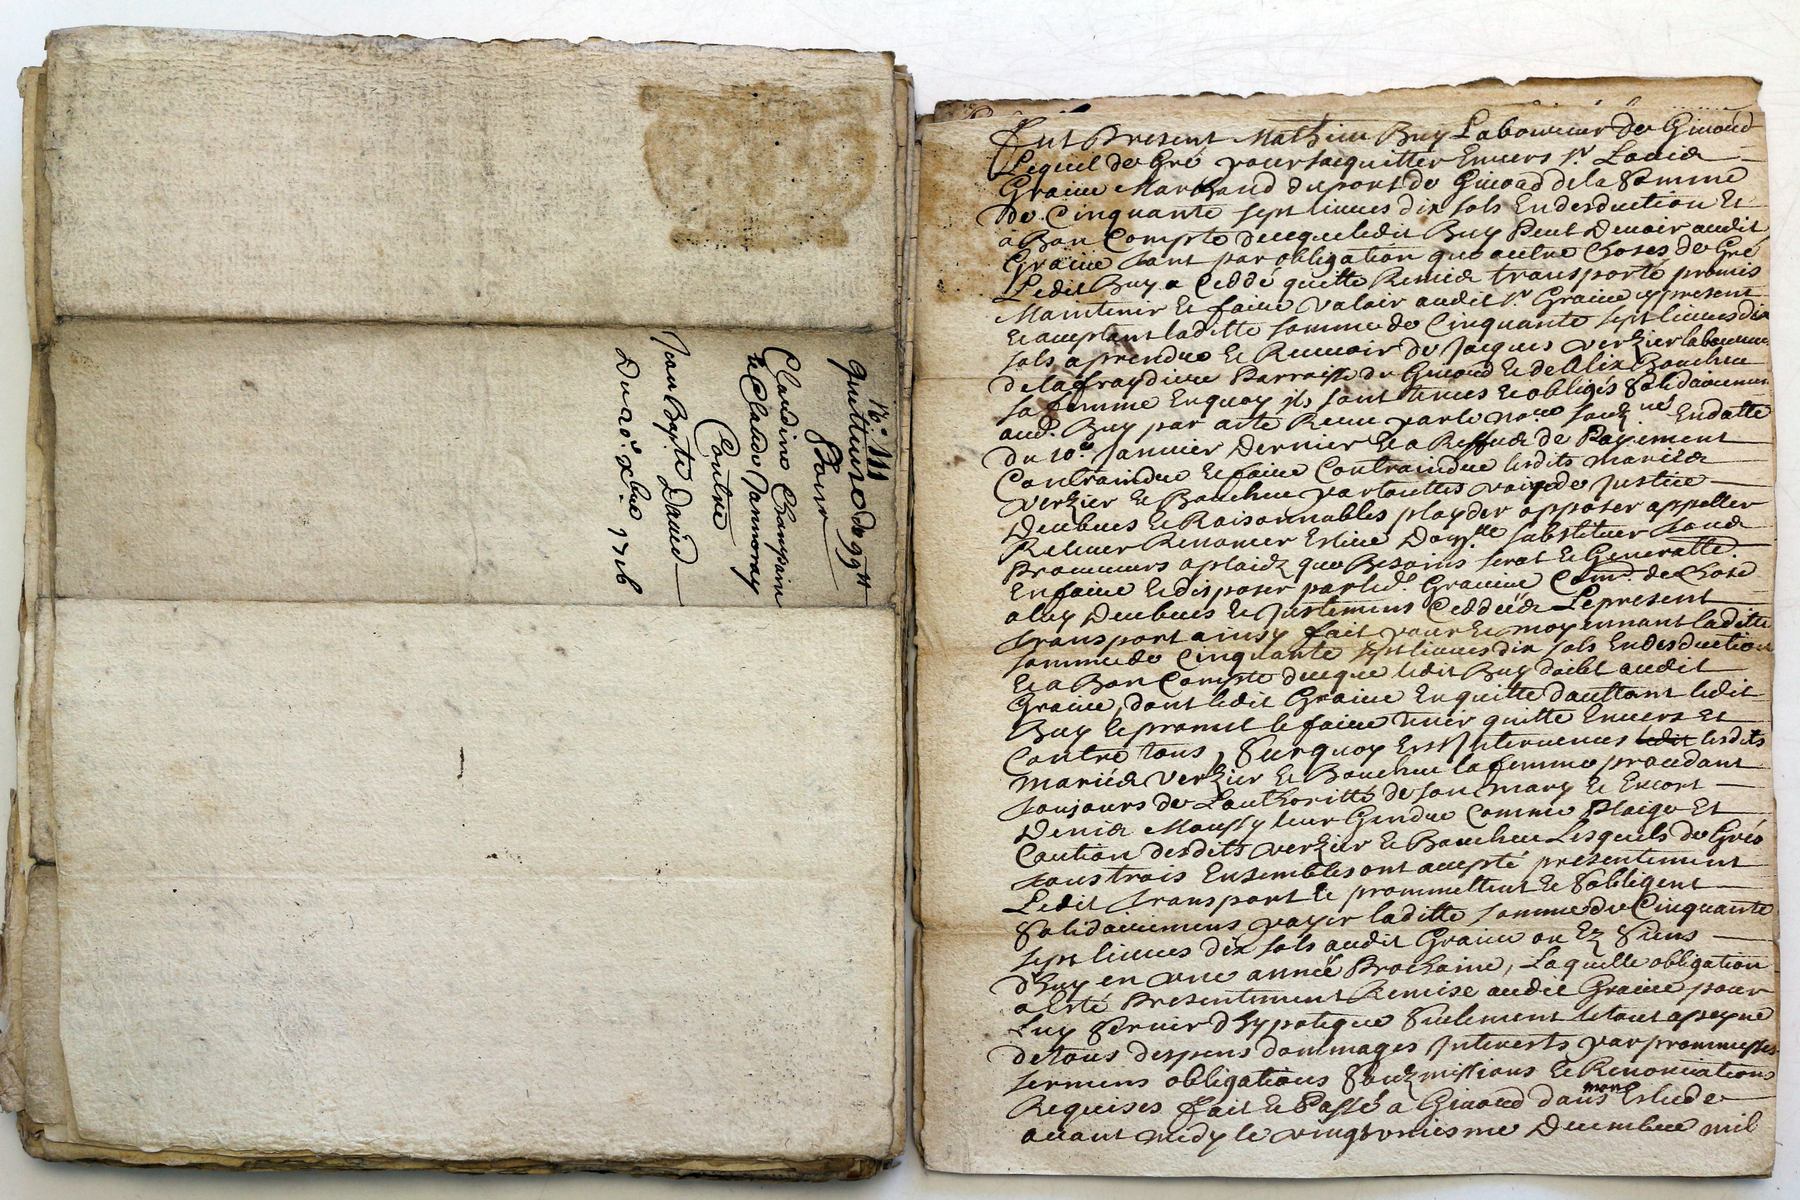 17e
quittance de 99tt
Pour
Claudine Champain
et Claude Jannoray
Contre
Jean Bapte David
Du 20e xbre 1716
Fut Present Mathieu Buy Laboureur de Givord
Lequel de Gré pour sacquitter Envers sr Louis
Graine Marchand du port de Givord de la somme
De Cinquante sept livres dix sols En desduction Et
a Bon Compte de ceque ledit Buy Peut Devoir audit
Graine tant par obligation que autre Choses de Gré
Ledit Buy a Ceddé quitte Remis transporté promis
Maintenir Et faire valoir audit sr Graine present
Et aceptant laditte somme de Cinquante sept livres dix
sols a prendre Et Recevoir de Jacques verzier laboureur
de la fraydiere Parroisse de Givord Et de Alix Boucheu
sa femme Enquoy ils sont tenus Et obligés solidairement
aud. Buy par acte Receu par le nore souzné Endatte
du 10e Janvier Dernier Et a Reffus de Payement
Contraindre Et faire Contraindre lesdits mariés
verzier Et Boucheu par touttes voyes de Justice
Deubues Et Raisonnables playder opposer appeller
Relever Renoncer Eslire Domlle substituer tous
Procureurs a plaids que Besoins serat Et Generalle.
En faire Et disposer par led. Graine Come de Chose
a luy Deubues Et Justement Ceddées Le present
transport ainsy fait pour Et moyennant laditte
somme de Cinquante sept livres dix sols En desduction
Et a Bon Compte de ceque ledit Buy doibt audit
Graine, dont ledit Graine En quitte d'autant ledit
Buy Et promet le faire tenir quitte Envers Et
Contre tous, surquoy Est Intervenus lesdits
mariés verzier Et Boucheu la femme procedant
toujours de Lauthoritté de son mary Et Encore
Denis Moussy leur Gendre Comme Plaige Et
Caution desdits verzier Et Boucheu Lesquels de Gré
tous trois Ensembles ont accepté presentement
Ledit transport Et promettent Et s'obligent
solidairement payer laditte somme de Cinquante
sept livres dix sols audit Graine ou Ez siens
d'huy en une année Prochaine, Laquelle obligation
a Esté Presentement Remise audit Graine pour
luy servir d'hypoteque seulement le tout a peyne
de tous despens dommages Interests par promesses
sermens obligations soubzmissions Et Renonciations
Requises fait Et Passé a Givord dans mon Estude
avant midy le vingtuniesme Decembre mil